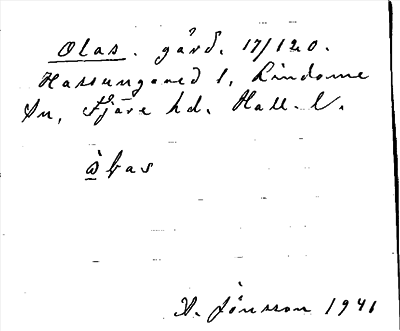 Olas. gård. 17/120.
Hassungared 1, Lindome
sn, Fjäre hd. Hall. l.
òlas
D. Jönsson 1941